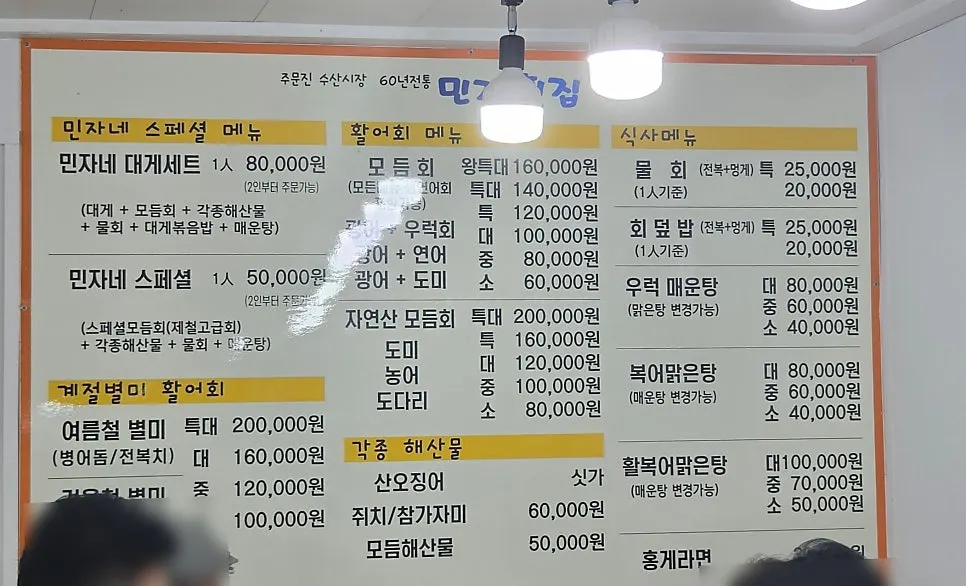 주문진 수산시장 60년전통
민자네 스페셜 메뉴
민자네 대게세트 1人 80,000원
(2인부터 주문가능)
(대게 + 모듬회 + 각종해산물
+ 물회 + 대게볶음밥 + 매운탕)
민자네 스페셜 1人 50,000원
(2인부터 주문가능)
(스페셜모듬회(제철고급회)
+ 각종해산물 + 물회 + 매운탕)
계절별미 활어회
여름철 별미 특대 200,000원
(병어돔/전복치) 대 160,000원
별미 중 120,000원
100,000원
활어회 메뉴
모듬회 왕특대 160,000원
특대 140,000원
특 120,000원
광어 + 우럭회 대 100,000원
광어 + 연어 중 80,000원
광어 + 도미 소 60,000원
자연산 모듬회 특대 200,000원
특 160,000원
도미 대 120,000원
농어 중 100,000원
도다리 소 80,000원
각종 해산물
산오징어 싯가
쥐치/참가자미 60,000원
모듬해산물 50,000원
식사메뉴
물회 (전복+멍게) 특 25,000원
(1人기준) 20,000원
회덮밥 (전복+멍게) 특 25,000원
(1人기준) 20,000원
우럭 매운탕 대 80,000원
(맑은탕 변경가능) 중 60,000원
소 40,000원
복어맑은탕 대 80,000원
(매운탕 변경가능) 중 60,000원
소 40,000원
활복어맑은탕 대100,000원
(매운탕 변경가능) 중 70,000원
소 50,000원
홍게라면